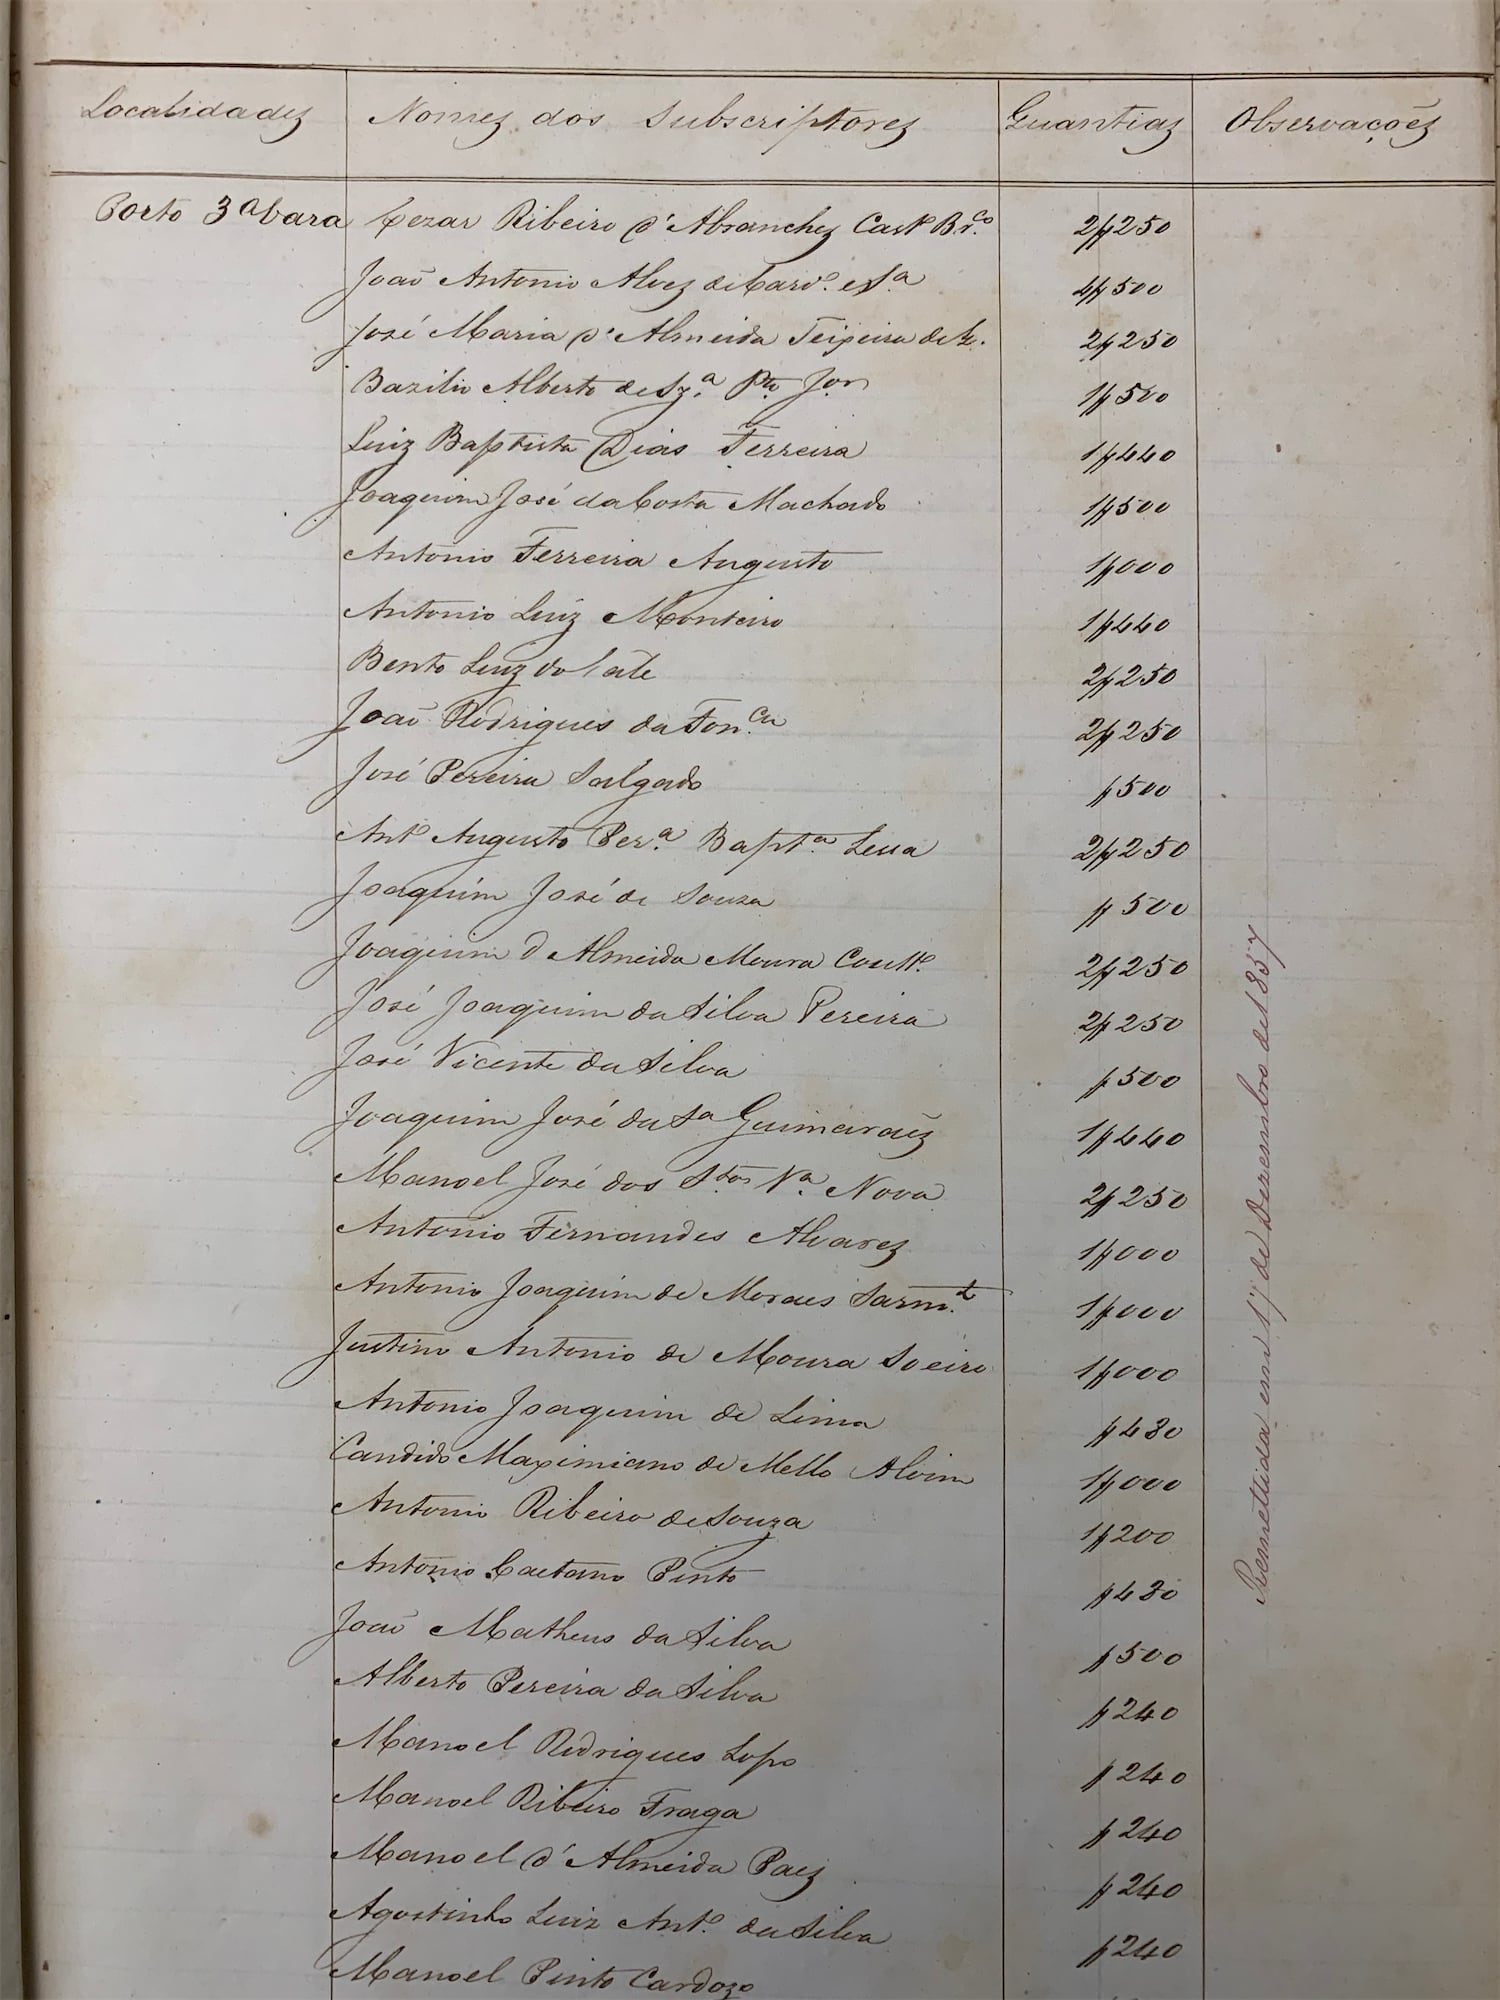 Localidades Nomes dos Subscriptores Quantias Observações
Porto 3ª vara Cezar Ribeiro d'Abranches Castº Br.co 2$250
João Antonio Alves de Carvº. e Sª 4$500
José Maria d'Almeida Teixeira de Q. 2$250
Bazilio Alberto de Sz.ª Pto. Jor 1$500
Luiz Baptista Dias Ferreira 1$440
Joaquim José da Costa Machado 1$500
Antonio Ferreira Augusto 1$000
Antonio Luiz Monteiro 1$440
Bento Luiz do Vale 2$250
João Rodrigues da Fon.ca 2$250
José Pereira Salgado $500
Antº Augusto Per.ª Bapt.ª Lessa 2$250
Joaquim José de Souza $500
Joaquim d Almeida Moura Coutto. 2$250
José Joaquim da Silva Pereira 2$250
José Vicente da Silva $500
Joaquim José da Sª Guimarães 1$440
Manoel José dos Stos Vª. Nova 2$250
Antonio Fernandes Alvares 1$000
Antonio Joaquim de Moraes Sarm.to 1$000
Justino Antonio de Moura Soeiro 1$000
Antonio Joaquim de Lima $480
Candido Maximiano de Mello Alvim 1$000
Antonio Ribeiro de Souza 1$200
Antonio Caetano Pinto $480
João Matheus da Silva $500
Alberto Pereira da Silva $240
Manoel Rodrigues Lopo $240
Manoel Ribeiro Fraga $240
Manoel d'Almeida Paes $240
Agostinho Luiz Antº. da Silva $240
Manoel Pinto Cardozo
Remettida em 17 de Dezembro de 1857